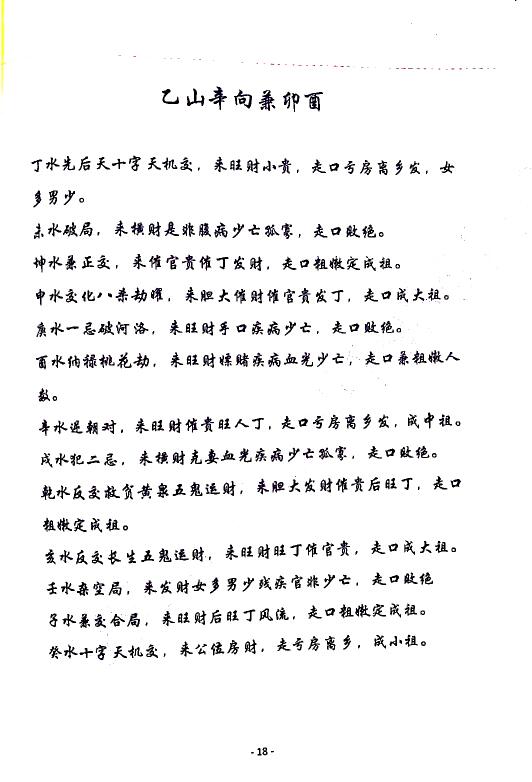 乙山辛向兼卯酉
丁水先后天十字天机交，来旺财小贵，走口亏房离乡发，女
多男少。
未水破局，来横财是非腹病少亡孤寡，走口败绝。
坤水兼正交，来催官贵催丁发财，走口粗嫩定成祖。
申水交化八杀劫曜，来胆大催财催官贵发丁，走口成大祖。
庚水一忌破河洛，来旺财手口疾病少亡，走口败绝。
酉水纳禄桃花劫，来旺财嫖赌疾病血光少亡，走口兼粗嫩人
数。
辛水逞朝对，来旺财催贵旺人丁，走口亏房离乡发，成中祖。
戌水犯二忌，来横财克妻血光疾病少亡孤寡，走口败绝。
乾水反交救贫黄泉五鬼运财，来胆大发财催贵后旺丁，走口
粗嫩定成祖。
亥水反交长生五鬼运财，来旺财旺丁催官贵，走口成大祖。
壬水杂空局，来发财女多男少残疾官非少亡，走口败绝
子水兼交合局，来旺财后旺丁风流，走口粗嫩定成祖。
癸水十字天机交，来公位房财，走亏房离乡，成小祖。
- 18 -